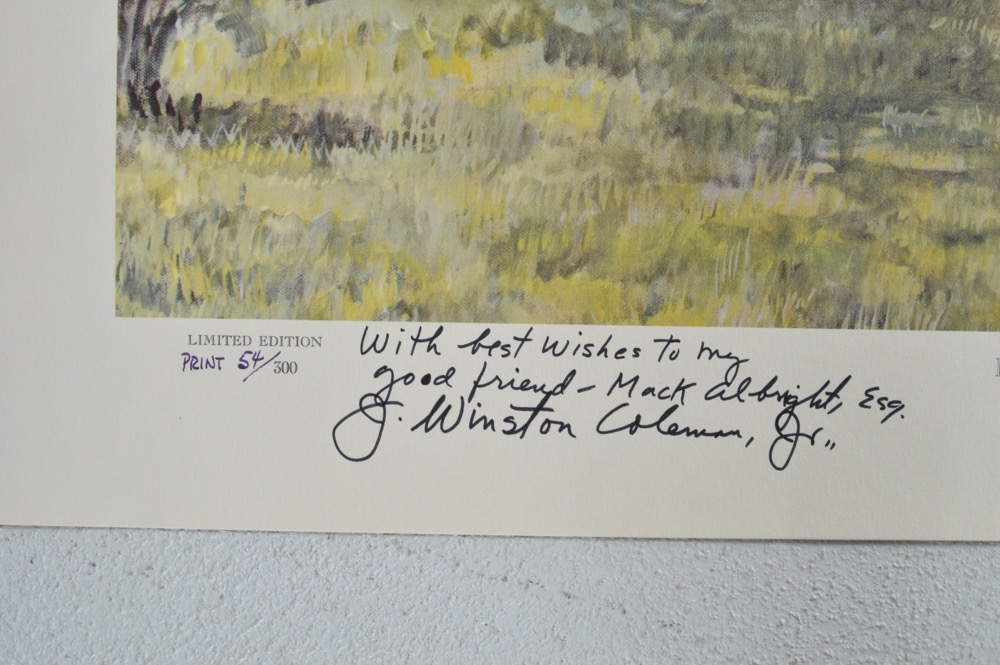 LIMITED EDITION
PRINT 54/300
With best wishes to my
good friend - Mack Albright, Esq.
J. Winston Coleman, Jr..